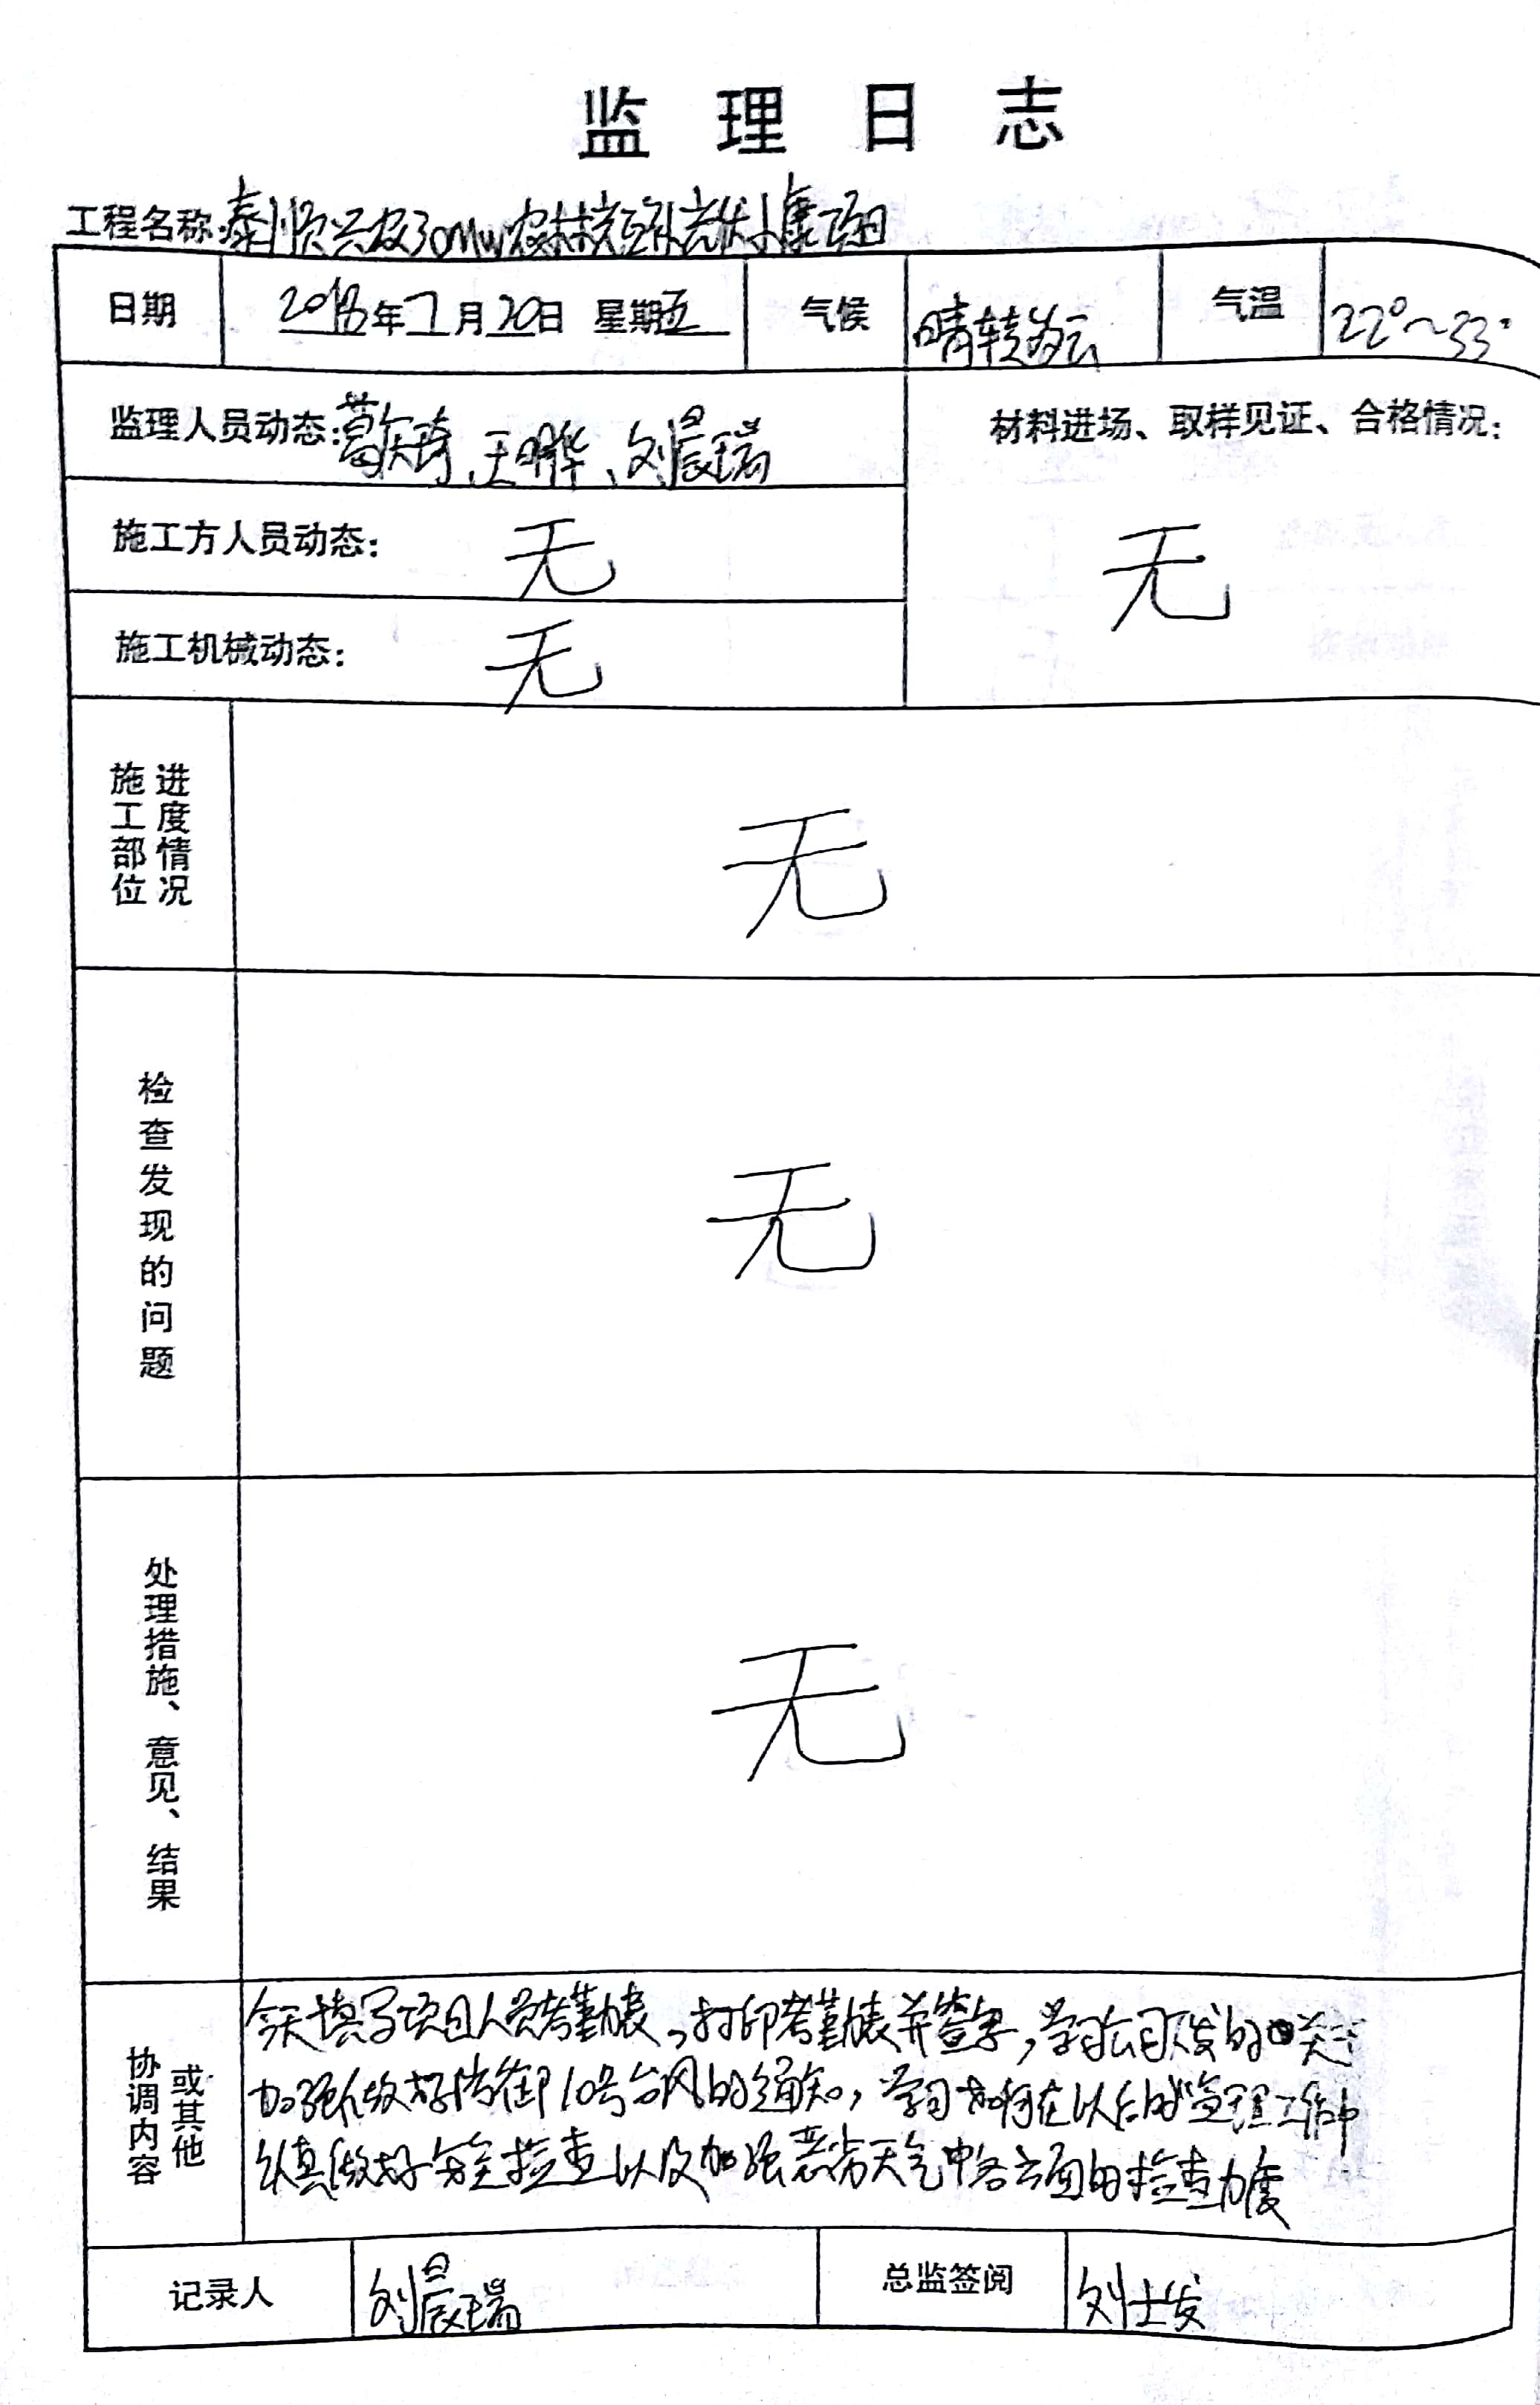 监理日志
工程名称:泰顺兴农30MW农林光互补光伏小康项目
日期 2018年7月20日 星期五 气候 晴转多云 气温 22°~33°
监理人员动态:葛天琦、王晔华、刘晨瑞 材料进场、取样见证、合格情况:
施工方人员动态: 无 无
施工机械动态: 无
施工部位 进度情况 无
检查发现的问题 无
处理措施、意见、结果 无
协调内容 或其他
今天填写项目人员考勤表,打印考勤表并签字,学习公司下发的关于
加强做好防御10号台风的通知,学习如何在以后的监理工作中
认真做好安全检查以及加强恶劣天气中各方面的检查力度
记录人 刘晨瑞 总监签阅 刘士发